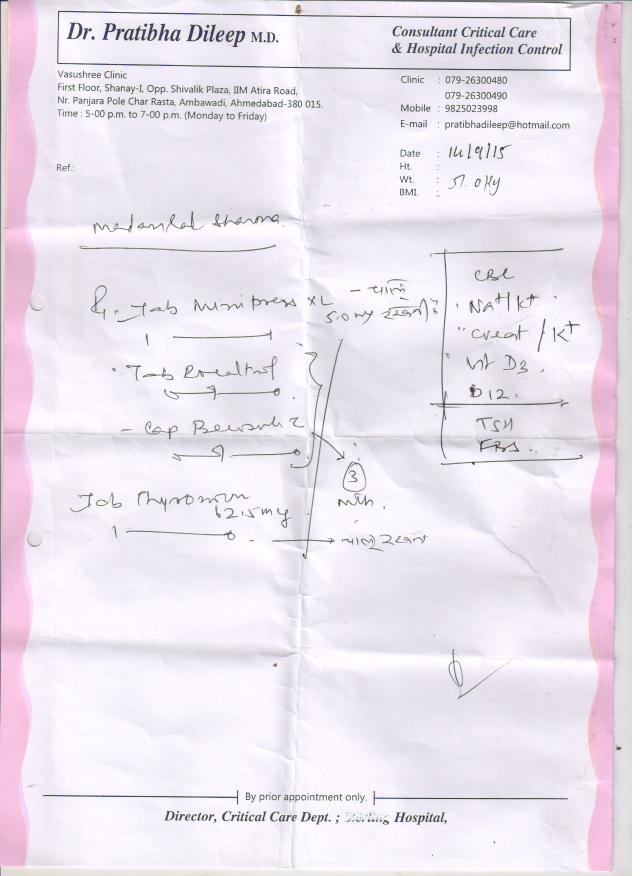 Dr. Pratibha Dileep M.D.
Consultant Critical Care
& Hospital Infection Control
Vasushree Clinic
First Floor, Shanay-I, Opp. Shivalik Plaza, IIM Atira Road,
Nr. Panjara Pole Char Rasta, Ambawadi, Ahmedabad-380 015.
Time : 5-00 p.m. to 7-00 p.m. (Monday to Friday)
Clinic : 079-26300480
079-26300490
Mobile : 9825023998
E-mail : pratibhadileep@hotmail.com
Ref.:
Date : 14/9/15
Ht. :
Wt. : 51.0 kg
BMI. :
Madanlal Sharma
Tab Minipress XL
5.0 mg
1 — 1
Tab Rocaltrol
- Cap Becosule Z
3
mth.
Tab Thyronorm
62.5 mg
1 — 0
CBC
Na+/K+
Creat / K+
Vit D3
B12.
TSH
FBS.
By prior appointment only.
Director, Critical Care Dept. ; Sterling Hospital,